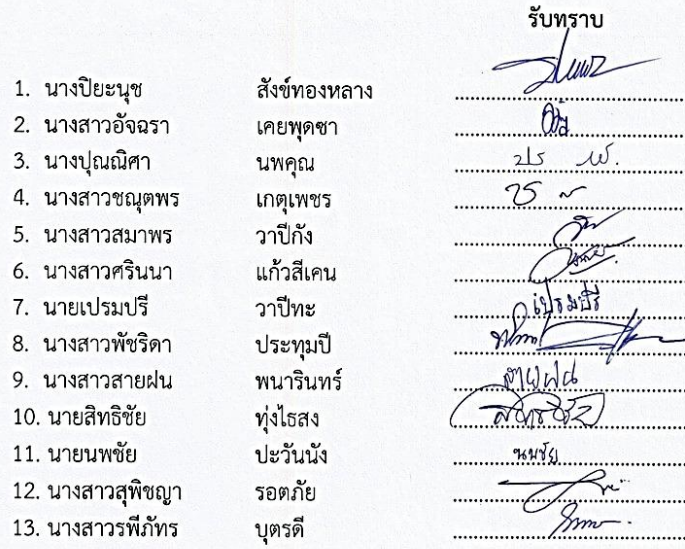 รับทราบ
1. นางปิยะนุช สังข์ทองหลาง
2. นางสาวอัจฉรา เคยพุดซา
3. นางปุณณิศา นพคุณ
4. นางสาวชณุตพร เกตุเพชร
5. นางสาวสมาพร วาปีกัง
6. นางสาวศรินนา แก้วสีเคน
7. นายเปรมปรี วาปีทะ เปรมปรี
8. นางสาวพัชริดา ประทุมปี
9. นางสาวสายฝน พนารินทร์ สายฝน
10. นายสิทธิชัย ทุ่งไธสง สิทธิชัย
11. นายนพชัย ปะวันนัง นพชัย
12. นางสาวสุพิชญา รอตภัย
13. นางสาวรพีภัทร บุตรดี